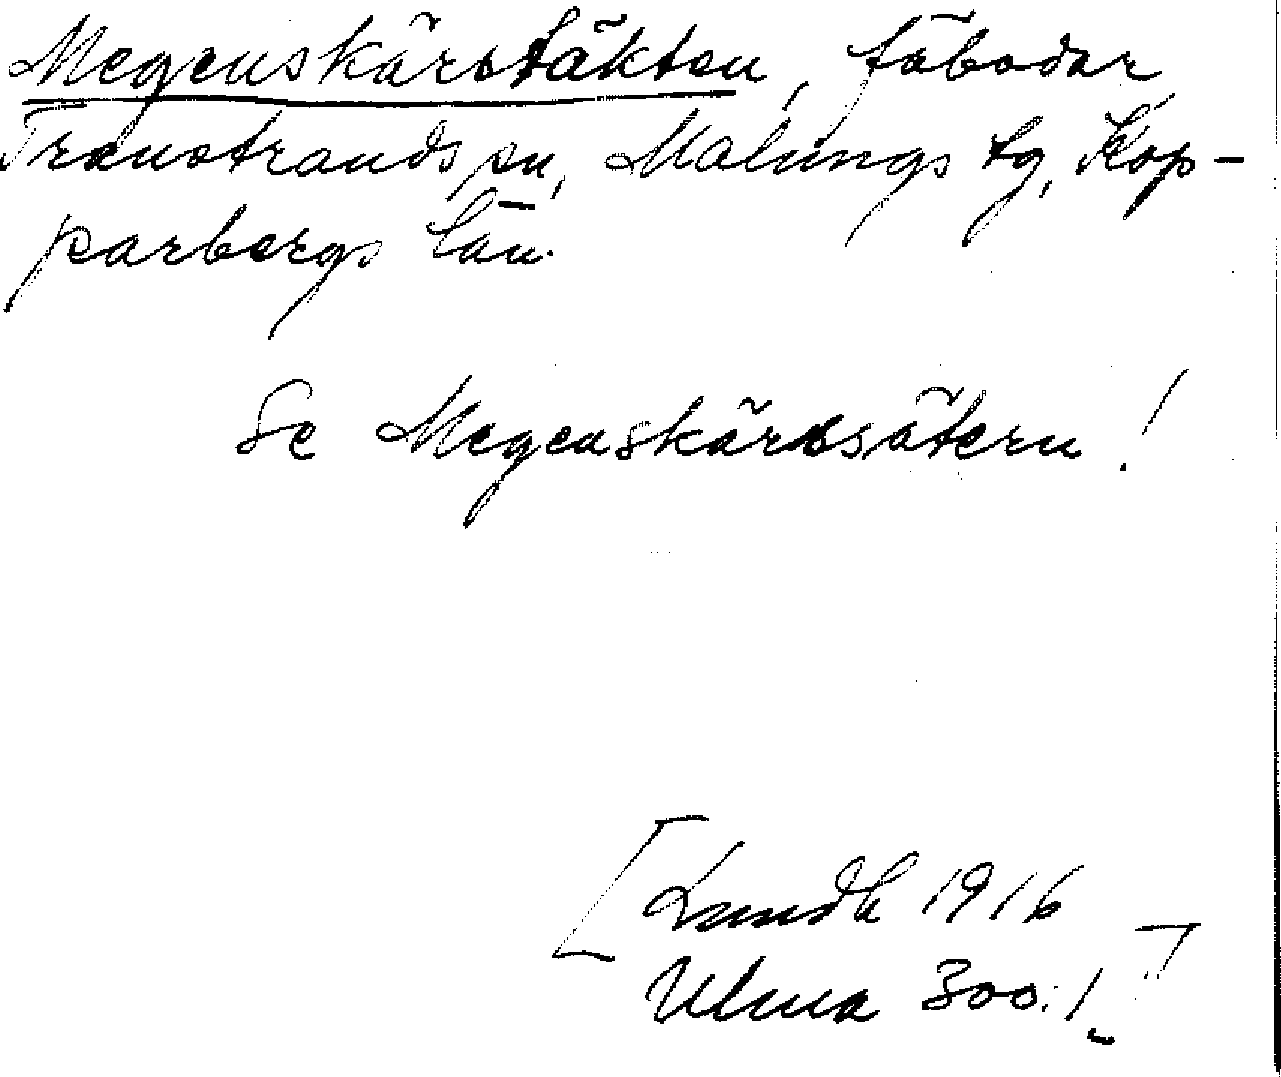 Megenskärstäkten, fäbodar
Transtrands sn, Malungs tg, Kop-
parbergs län.
Se Megenskärssätern!
[Lundh 1916
Ulma 300:1]